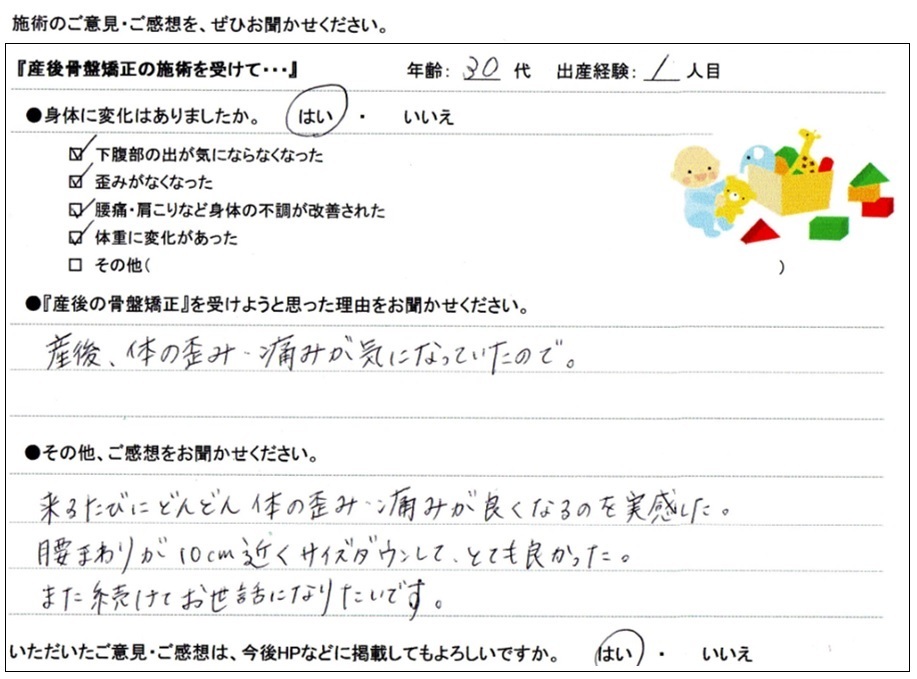 施術のご意見・ご感想を、ぜひお聞かせください。
『産後骨盤矯正の施術を受けて・・・』 年齢： 30 代 出産経験： 1 人目
●身体に変化はありましたか。 はい ・ いいえ
☑ 下腹部の出が気にならなくなった
☑ 歪みがなくなった
☑ 腰痛・肩こりなど身体の不調が改善された
☑ 体重に変化があった
□ その他( )
●『産後の骨盤矯正』を受けようと思った理由をお聞かせください。
産後、体の歪み・痛みが気になっていたので。
●その他、ご感想をお聞かせください。
来るたびにどんどん体の歪み・痛みが良くなるのを実感した。
腰まわりが10cm近くサイズダウンして、とても良かった。
また続けてお世話になりたいです。
いただいたご意見・ご感想は、今後HPなどに掲載してもよろしいですか。 はい ・ いいえ